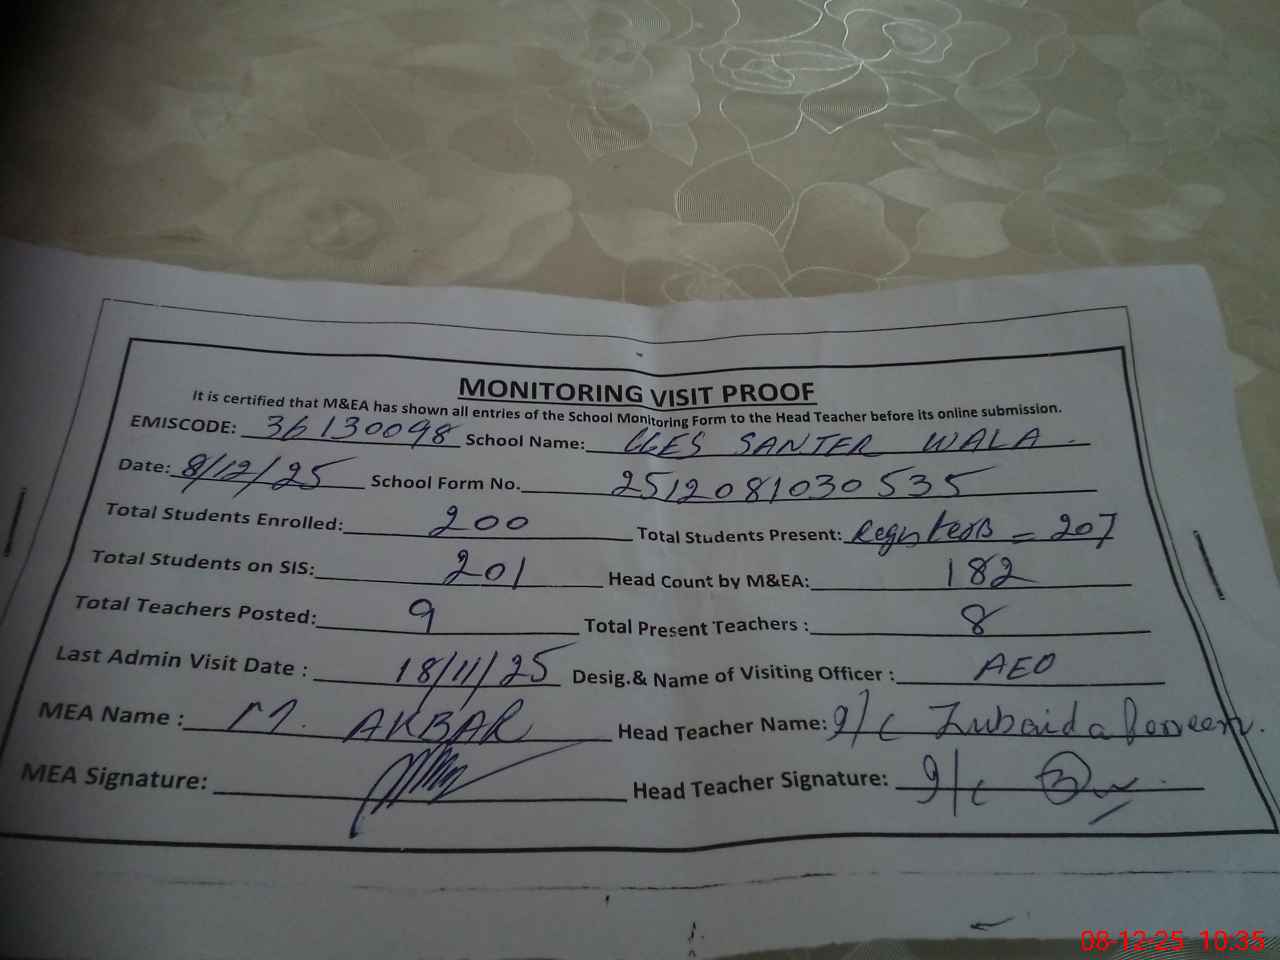 MONITORING VISIT PROOF
It is certified that M&EA has shown all entries of the School Monitoring Form to the Head Teacher before its online submission.
EMISCODE: 36130098 School Name: GGES SANTER WALA
Date: 8/12/25 School Form No. 2512081030535
Total Students Enrolled: 200 Total Students Present: Registers = 207
Total Students on SIS: 201 Head Count by M&EA: 182
Total Teachers Posted: 9 Total Present Teachers : 8
Last Admin Visit Date : 18/11/25 Desig.& Name of Visiting Officer : AEO
MEA Name : M. AKBAR Head Teacher Name: I/c Zubaida Parveen.
MEA Signature: Head Teacher Signature: I/c
08-12-25 10:35